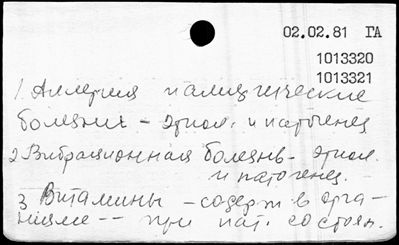 02.02.81 ГА
1013320
1013321
1. Аллергия и аллергические
болезни – этиол. и патогенез
2. Вибрационная болезнь – этиол.
и патогенез.
3. Витамины – содерж в орга-
низме -- при пат. состоян.